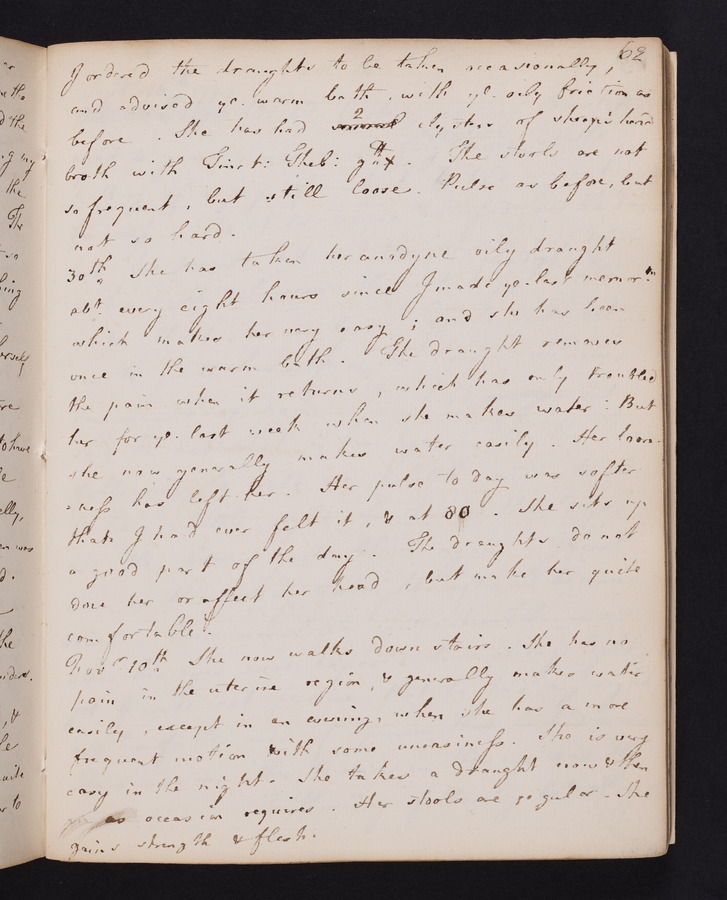 62
I ordered the draughts to be taken occasionally,
and advised ye. warm bath, with ye. oily friction as
before. She has had 2 clysters of sheep's head
broth with Tinct: Theb: gtt x. The stools are not
so frequent, but still loose. Pulse as before, but
not so hard.
30th. She has taken her anodyne oily draught
abt. every eight hours since I made ye. last memor:m
which makes her very easy; and she has been
once in the warm bath. The draught removes
the pain when it returns, which has only troubled
her for ye. last week when she makes water: But
she now generally makes water easily. Her loose-
=ness has left her. Her pulse to day was softer
than I had ever felt it, & at 80. She sits up
a good part of the day. The draughts do not
doze her or affect her head, but make her quite
comfortable.
Novr. 10th She now walks down stairs. She has no
pain in the uterine region, & generally makes water
easily, except in an evening, when she has a more
frequent motion with some uneasiness. She is very
easy in the night. She takes a draught now & then
as occasion requires. Her stools are regular. She
gains strength & flesh.